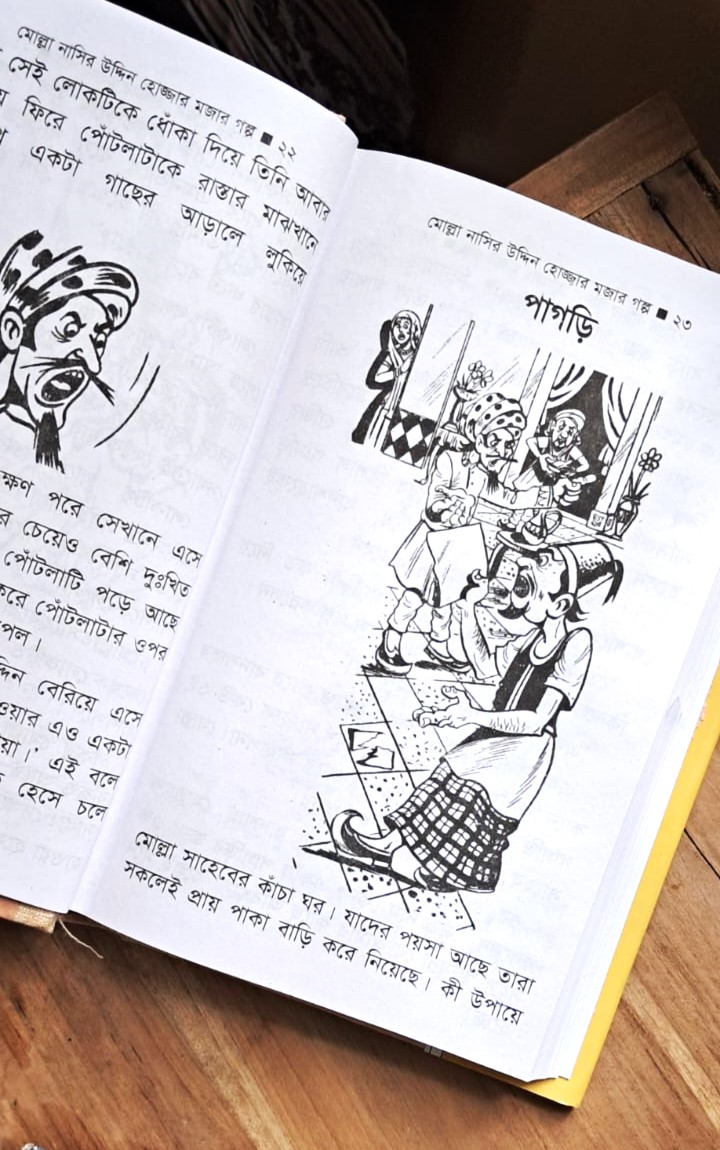 মোল্লা নাসির উদ্দিন হোজ্জার মজার গল্প ■ ২২
সেই লোকটিকে ধোঁকা দিয়ে তিনি আবার
ফিরে পোঁটলাটাকে রাস্তার মাঝখানে
একটা গাছের আড়ালে লুকিয়ে
পরে সেখানে এসে
চেয়েও বেশি দুঃখিত
পোঁটলাটি পড়ে আছে
পোঁটলাটার ওপর
বেরিয়ে এসে
এও একটা
এই বলে
হেসে চলে
মোল্লা নাসির উদ্দিন হোজ্জার মজার গল্প ■ ২৩
পাগড়ি
মোল্লা সাহেবের কাঁচা ঘর। যাদের পয়সা আছে তারা
সকলেই প্রায় পাকা বাড়ি করে নিয়েছে। কী উপায়ে